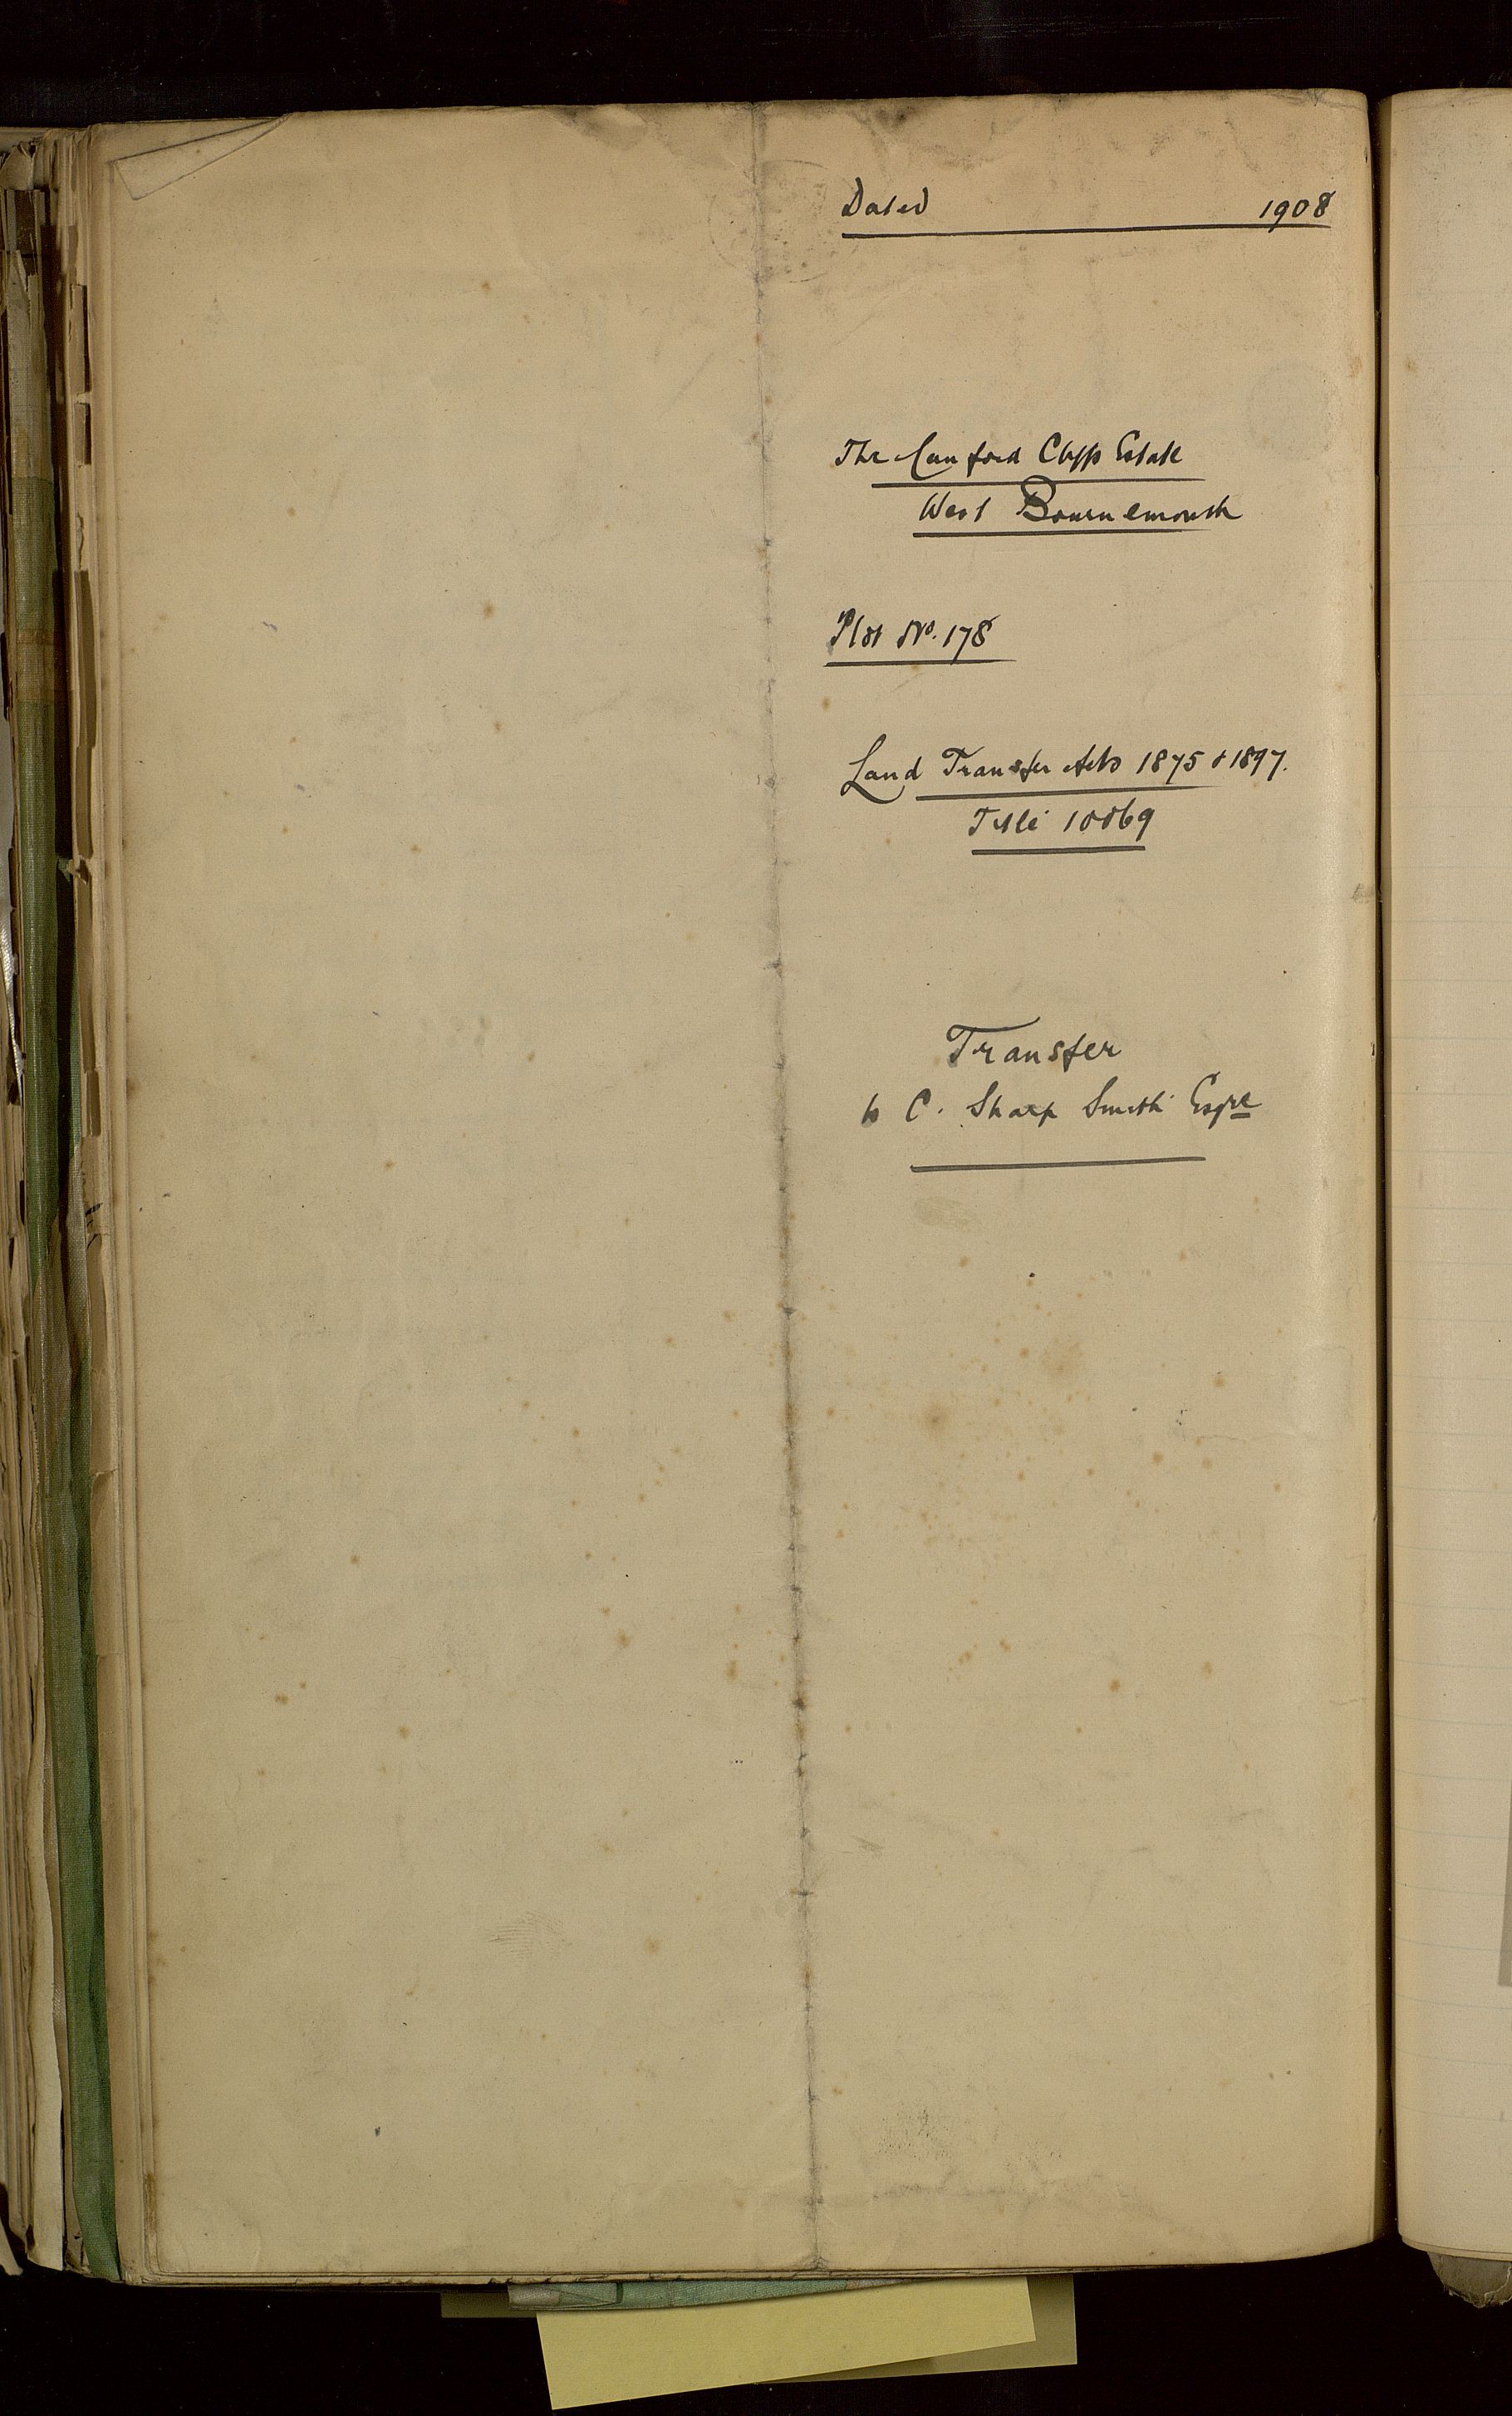 Dated 1908
The Canford Cliffs Estate
West Bournemouth
Plot No. 178
Land Transfer Acts 1875 & 1897.
Title 10069
Transfer
to C. Sharp Smith Esqre